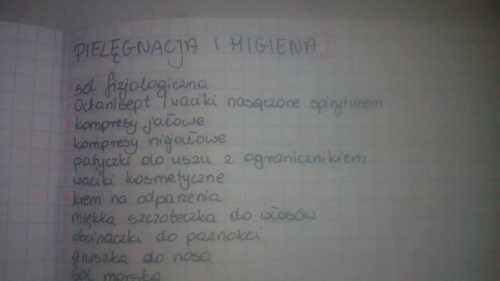 PIELĘGNACJA I HIGIENA
sól fizjologiczna
Octanisept i waciki nasączone spirytusem
kompresy jałowe
kompresy niejałowe
patyczki do uszu z ogranicznikiem
waciki kosmetyczne
krem na odparzenia
miękka szczoteczka do włosów
obcinaczki do paznokci
gruszka do nosa
sól morska